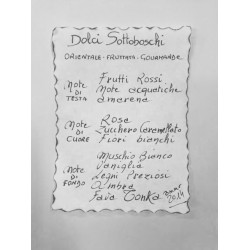 Dolci Sottoboschi
ORIENTALE - FRUTTATA - GOURMANDE
Note DI TESTA
Frutti Rossi
Note acquatiche
amarena
Note DI CUORE
Rosa
Zucchero Caramellato
Fiori bianchi
Note DI FONDO
Muschio Bianco
Vaniglia
Legni Preziosi
Ambra
Fava Tonka
2014